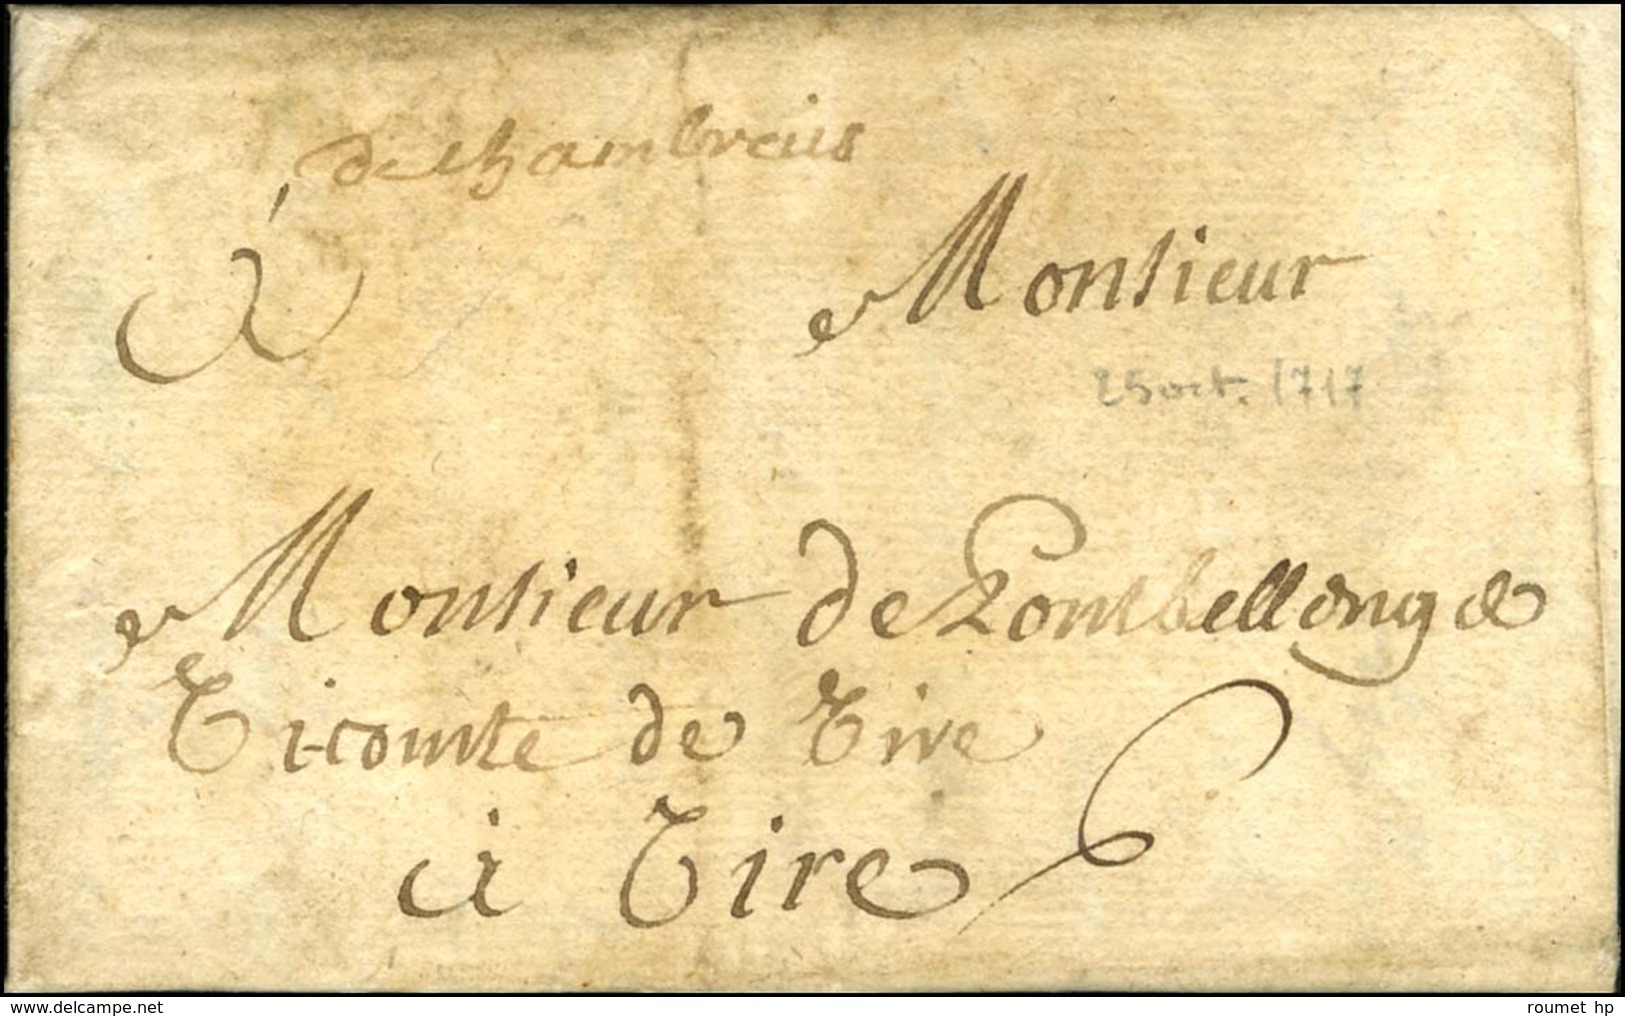 de chambrais
A
Monsieur
25 oct. 1717
Monsieur de
Vicomte de Vire
à Vire
6
delcampe.net
roumet hp